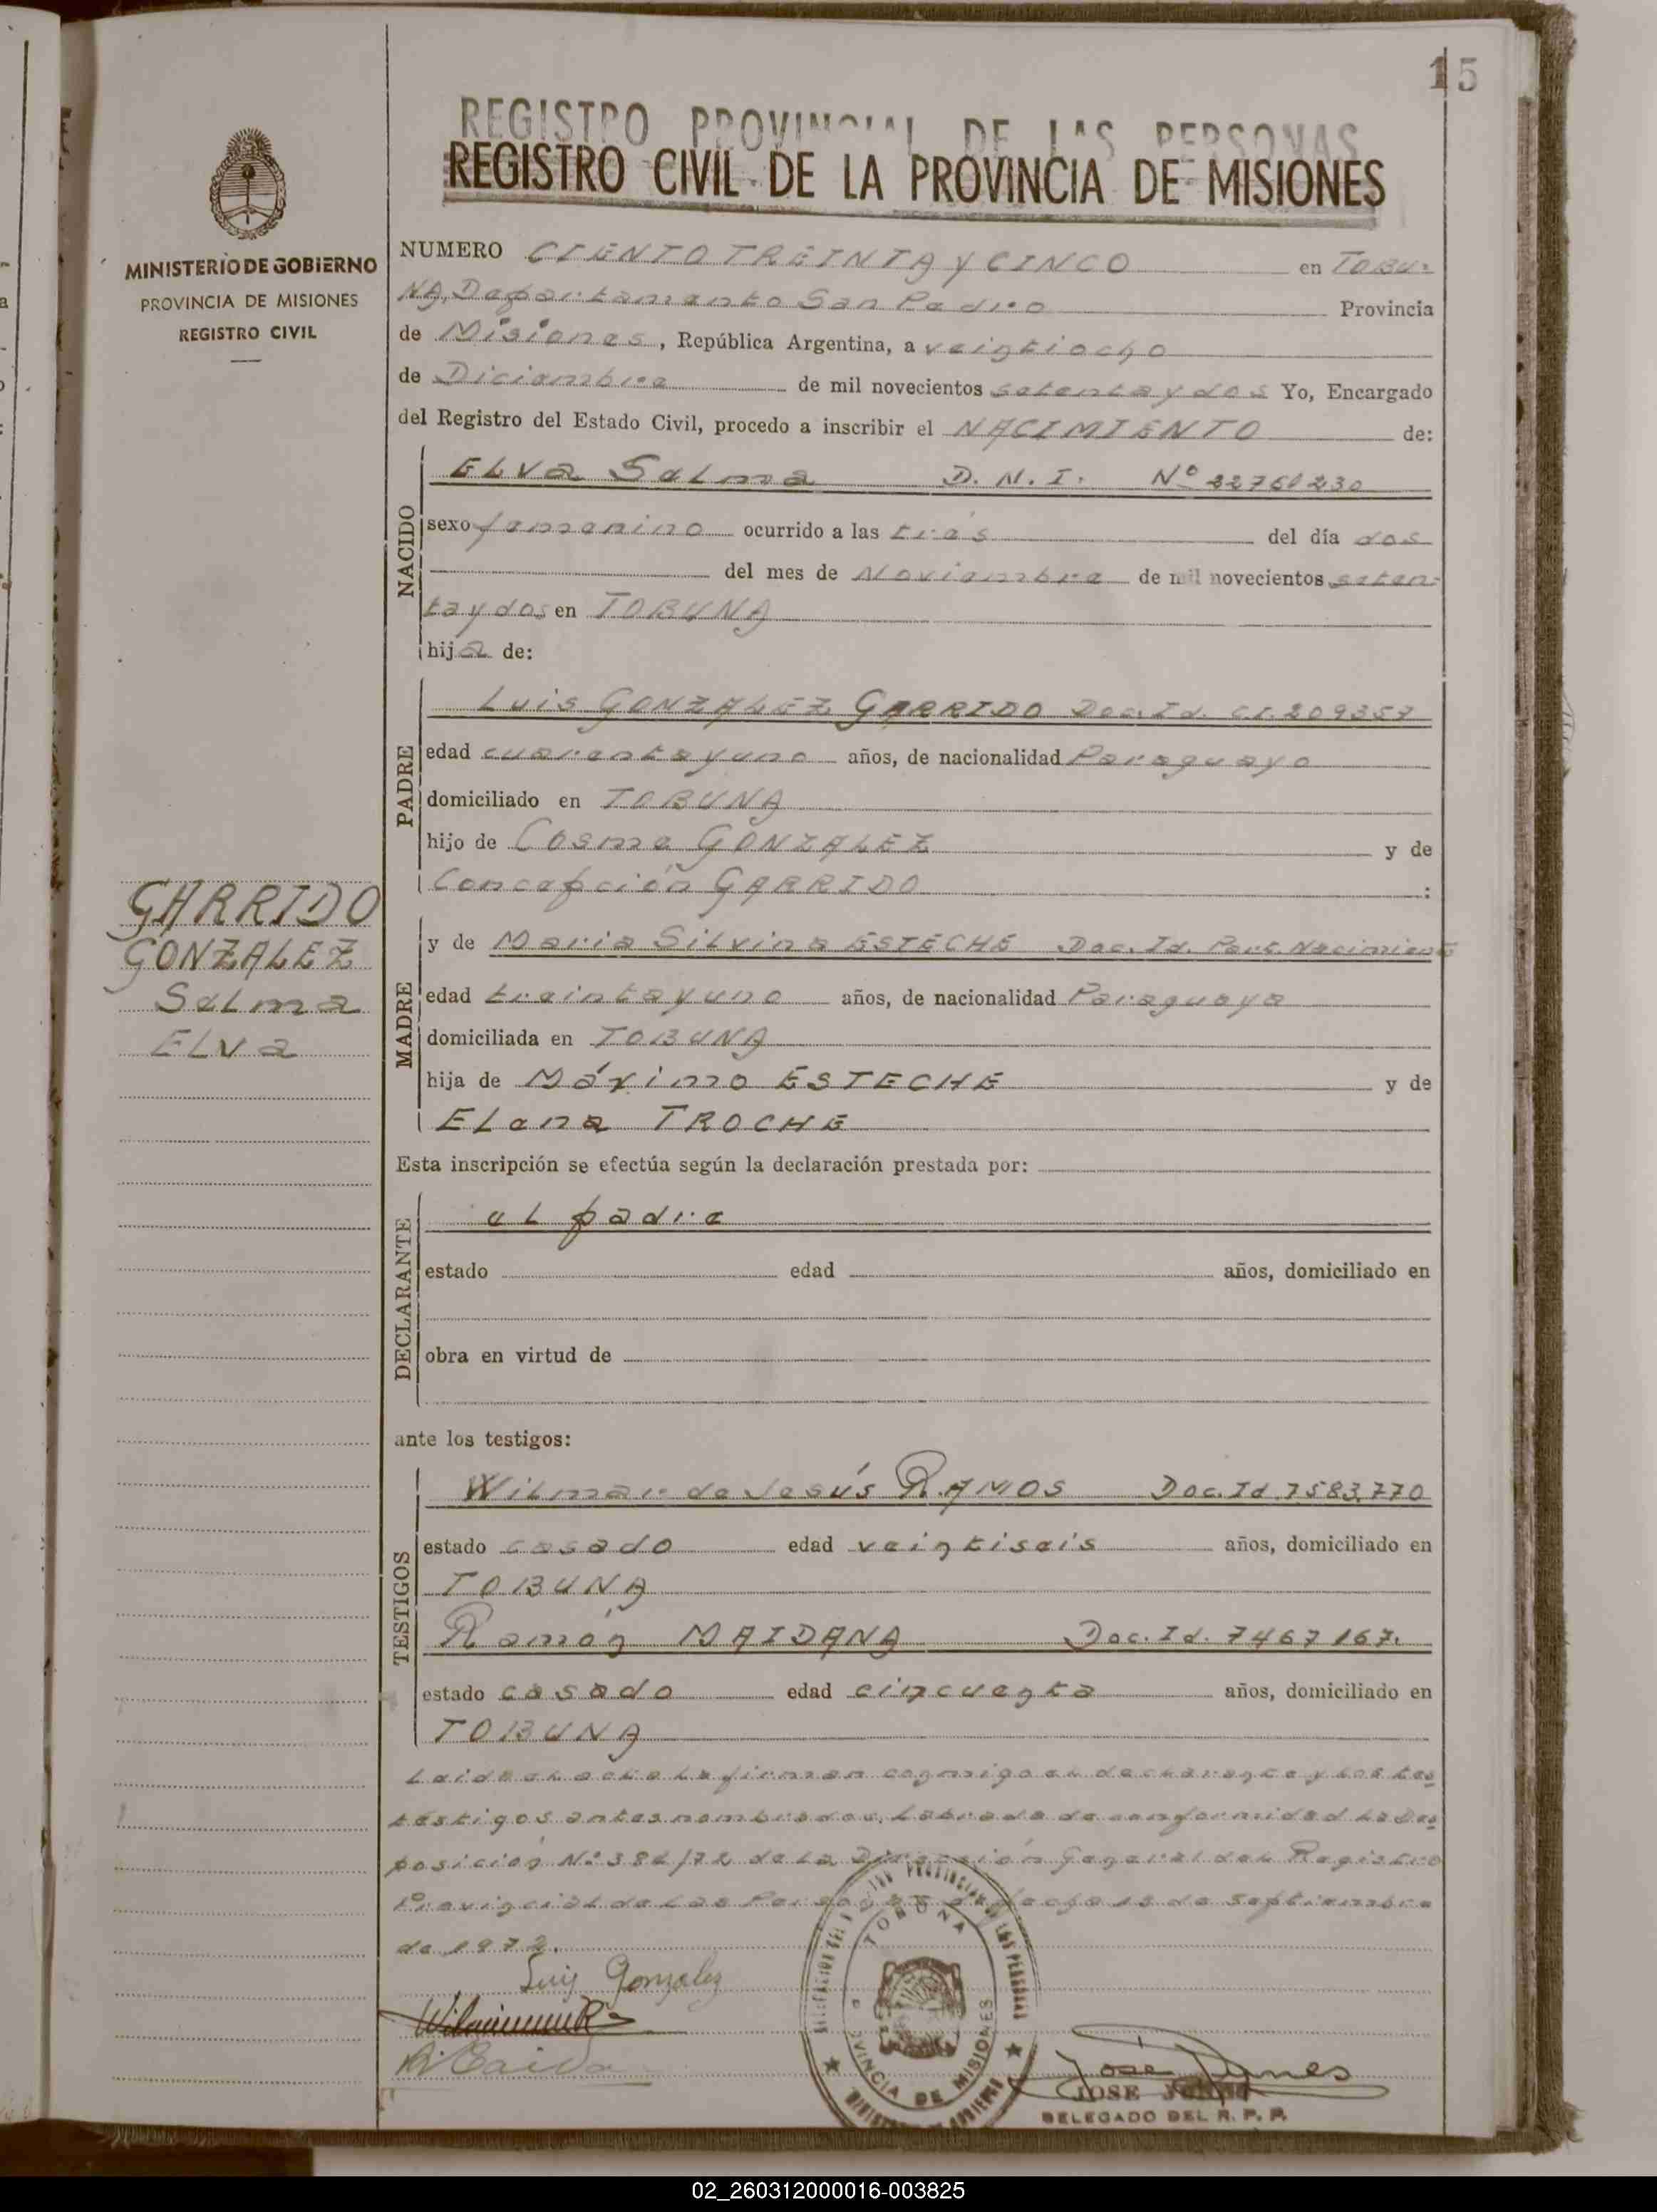 15
REGISTRO PROVINCIAL DE LAS PERSONAS
REGISTRO CIVIL DE LA PROVINCIA DE MISIONES
MINISTERIO DE GOBIERNO
PROVINCIA DE MISIONES
REGISTRO CIVIL
NUMERO CIENTO TREINTA Y CINCO en TOBU-
NA, Departamento San Pedro Provincia
de Misiones, República Argentina, a veintiocho
de Diciembre de mil novecientos setenta y dos Yo, Encargado
del Registro del Estado Civil, procedo a inscribir el NACIMIENTO de:
NACIDO
ELva Selma D. N. I. Nº 22760230
sexo femenino ocurrido a las tres del día dos
del mes de Noviembre de mil novecientos seten-
ta y dos en TOBUNA
hija de:
PADRE
Luis GONZALEZ GARRIDO Doc. Id. C.I. 209357
edad cuarenta y uno años, de nacionalidad Paraguayo
domiciliado en TOBUNA
hijo de Cosme GONZALEZ y de
Concepción GARRIDO :
GARRIDO
GONZALEZ
Selma
ELva
MADRE
y de Maria Silvina ESTECHE Doc. Id. Part. Nacimiento
edad treinta y uno años, de nacionalidad Paraguaya
domiciliada en TOBUNA
hija de Máximo ESTECHE y de
ELena TROCHE
Esta inscripción se efectúa según la declaración prestada por:
DECLARANTE
el padre
estado edad años, domiciliado en
obra en virtud de
ante los testigos:
TESTIGOS
Wilmar de Jesús RAMOS Doc. Id 7583.770
estado casado edad veintiseis años, domiciliado en
TOBUNA
Ramón MAIDANA Doc. Id. 7467167.
estado casado edad cincuenta años, domiciliado en
TOBUNA
Leida el acta la firman conmigo el declarante y los tes
testigos antes nombrados. Labrada de conformidad la Dis
posición Nº 382/72 de la Dirección General del Registro
Provincial de las Personas de fecha 18 de Septiembre
de 1972.
Luis Gonzalez
TOBUNA
PROVINCIA DE MISIONES
JOSE
DELEGADO DEL R. P. P.
02_260312000016-003825